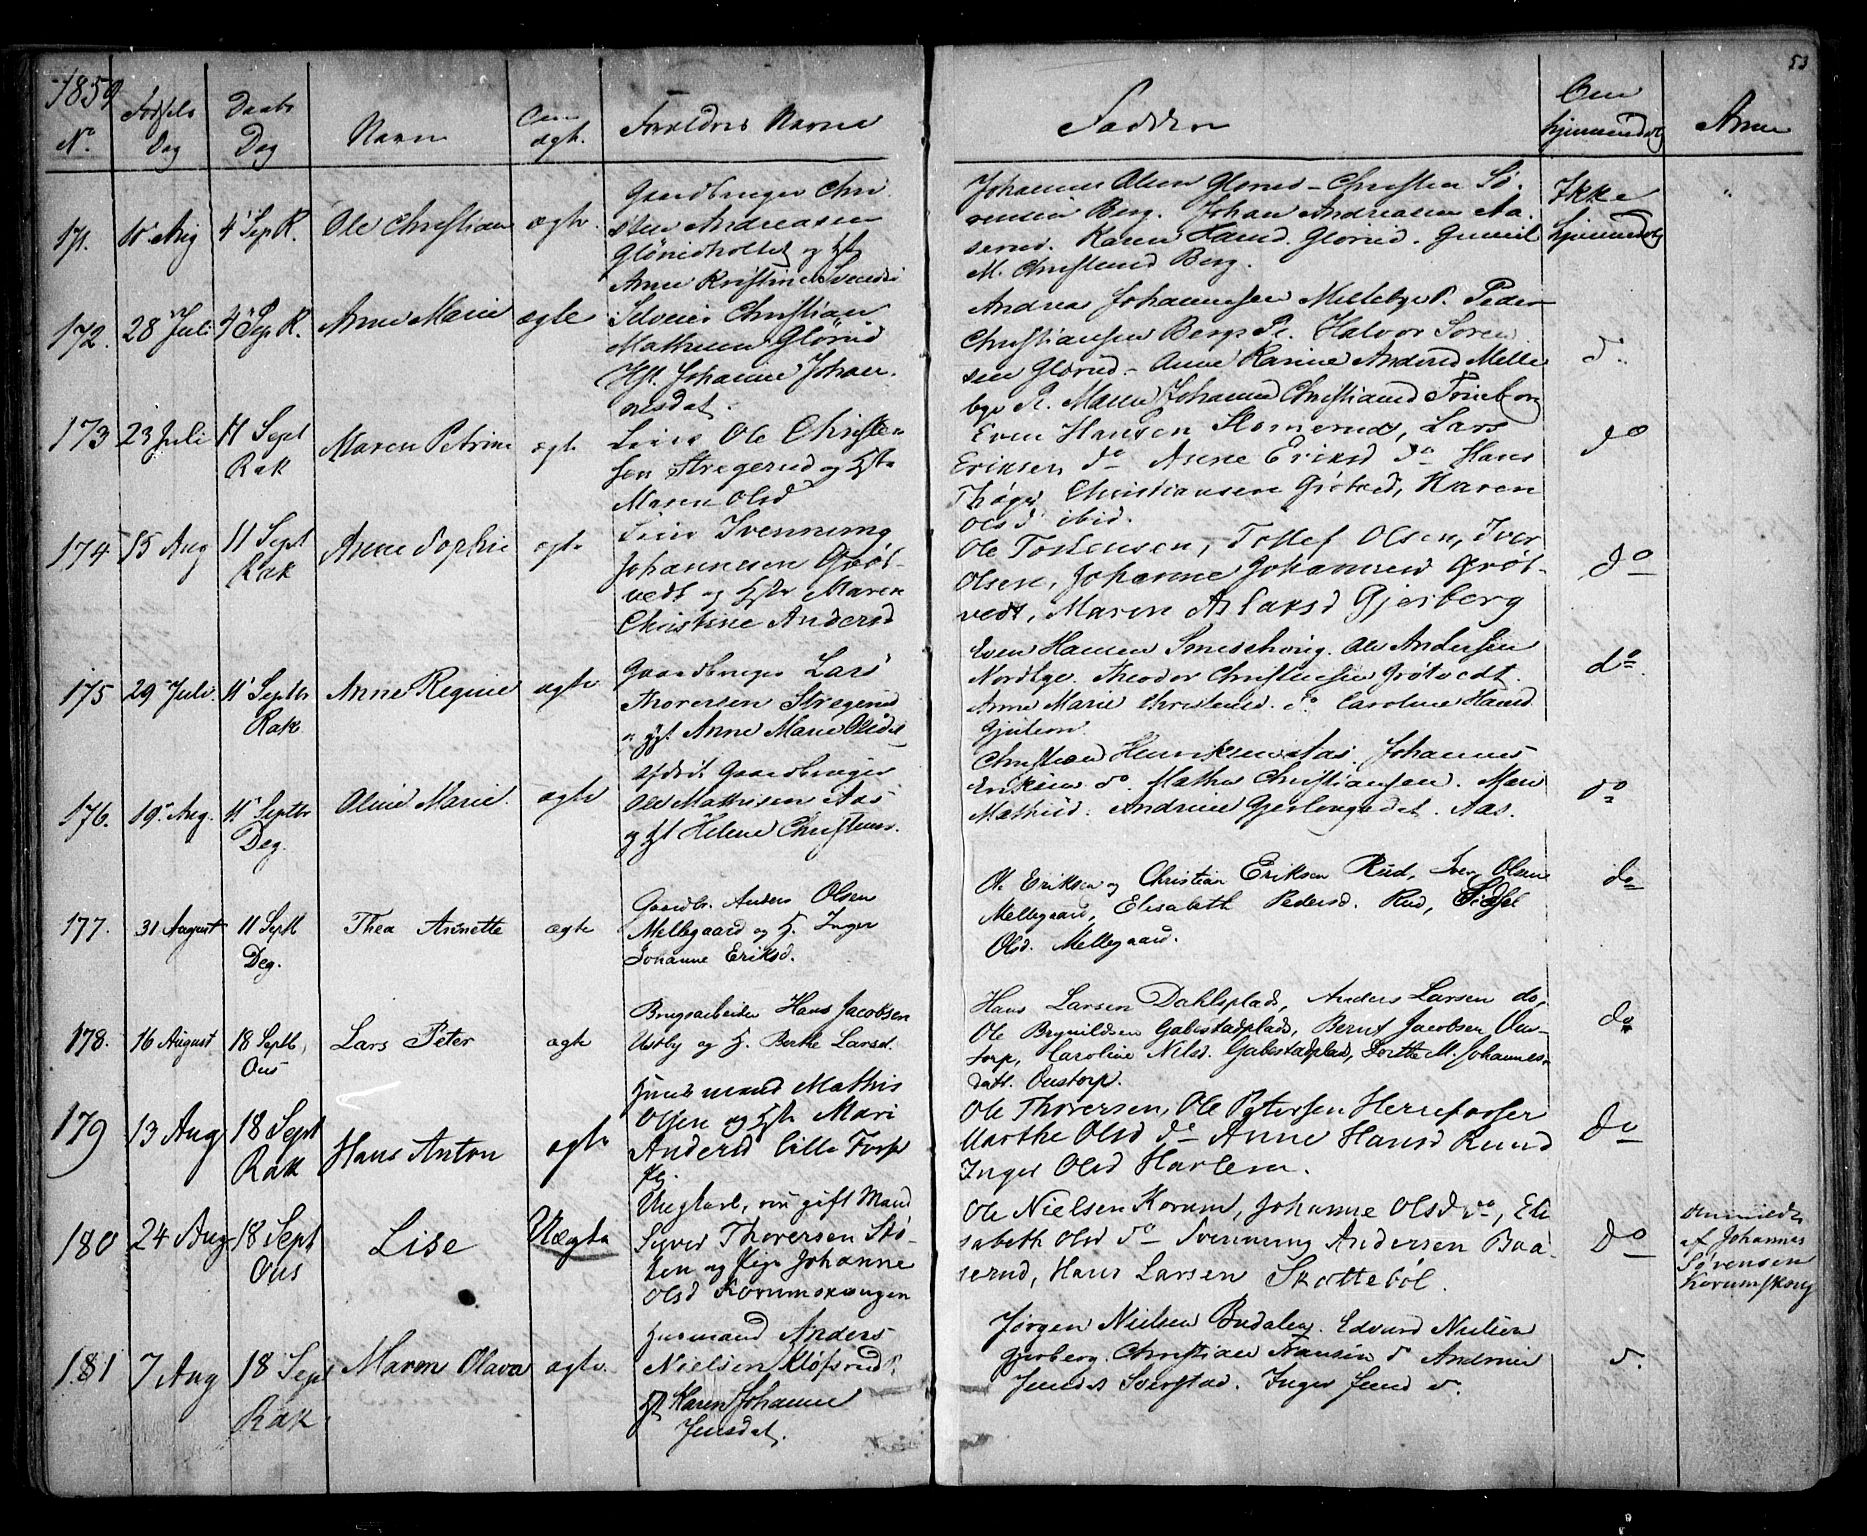 53
1859
No. Fødsels Dag Daabs Dag Navn Om ægte. Forældres Navne Faddere Om hjemmedøbt Anm
171. 10 Aug 4 Sep R. Ole Christian ægte
Gaardbruger Chri
sten Andreasen
og Hst
Anne Kristine
Johannes Olsen Glorud - Christen Sø-
rensen Berg. Johan Andreasen Aa-
serud. Karen Hansd. Glorud. Gunil
M. Christensd Berg.
Ikke
hjemmedøbt
172. 28 Juli 4 Sep R. Anne Marie ægte
Selveier Christian
Mathisen Glorud
Hst. Johanne Johan-
nesdat.
Andrea Johannesen Mellebye P. Peder
Christiansen Bergs Pl. Halvor Soren
sen Glorud - Anne Karine Andersd Melle
bye Pl. Maren Johanne Christiansd
do
173 23 Juli 11 Sept Rak Maren Petrine ægte
Leier Ole Christen
sen Stregerud og Hst
Maren Olsd
Even Hansen Homerud, Lars
Eriksen do Anne Eriksd do Hans
Christiansen Grøtved, Karen
Olsd ibid.
do
174 15 Aug 11 Sept Rak Anne Sophie ægte
Leier Svenning
Johannesen Grøt-
vedt og Hst Maren
Christine Andersd
Ole Tostensen, Tollef Olsen, Iver
Olsen, Johanne Johannesd Grøt-
vedt, Maren Aslaksd Gjerberg
do
175 29 Juli. 11 Septbr Rak Anne Regine ægte
Gaardbruger Lars
Thoresen Stregerud
og Hst Anne Marie Olsdat
Even Hansen Smedshoug. Ole Andersen
Nordbye. Theodor Christensen Grøtvedt.
Anne Marie Christensd. do Caroline Hansd
do
176. 19 Aug. 11 Septbr Deg. Oline Marie. ægte
Gaardbruger
Ole Mathisen Aas
og Hst Helene Christens.
Christian Henriksen Aas. Johannes
Eriksen do. Mathis Christiansen. Mari
Mathisd. Andrine Aas.
do
177. 31 August 11 Septb Deg. Thea Annette ægte
Gaardbr. Anders Olsen
Mellegaard og H. Inger
Johanne Eriksd.
Ole Eriksen og Christian Eriksen Rud, Iver Olsen
Mellegaard, Elisabeth Pedersd. Rud, Sidsel
Olsd. Mellegaard.
do
178. 16 August 18 Septb, Ous Lars Peter ægte
Brugsarbeider Hans Jacobsen
Ustby og H. Berthe Larsd.
Hans Larsen Dahlsplads, Anders Larsen do,
Ole Brynildsen Gabestadplads, Bernt Jacobsen Ous-
torp, Caroline Nilsd. Gabestadplads, Dorthe M. Johannes-
datt. Oustorp.
do
179 13 Aug 18 Sept Rak Hans Anton ægte
Huusmand Mathis
Olsen og Hst Mari
Andersd Lille Torp
Ole Thoresen, Ole Petersen Herrefosser
Marthe Olsd do Anne Hansd Rund
Inger Olsd Harlem.
do
180 24 Aug 18 Sept Ous Lise Uægte
Ungkarl, nu gift Mand
Syver Thoresen Stø-
ten og Pige Johanne
Olsd Korumoxengen
Ole Nielsen Korum, Johanne Olsd do, Eli
sabeth Olsd do Svenning Andersen Baa-
serud, Hans Larsen Skottebøl.
Do
Anmeldt
af Johannes
Sørensen
Korumskoug
181 7 Aug 18 Sept Rak. Maren Olava ægte.
Husmand Anders
Nielsen Kløfsrud
Hst Karen Johanne
Jensdat.
Jørgen Nielsen Budalen. Edvard Nielsen
Gjerberg. Christian Hansen do Andrine
Jensdt Sverstad. Inger Jensd do.
do